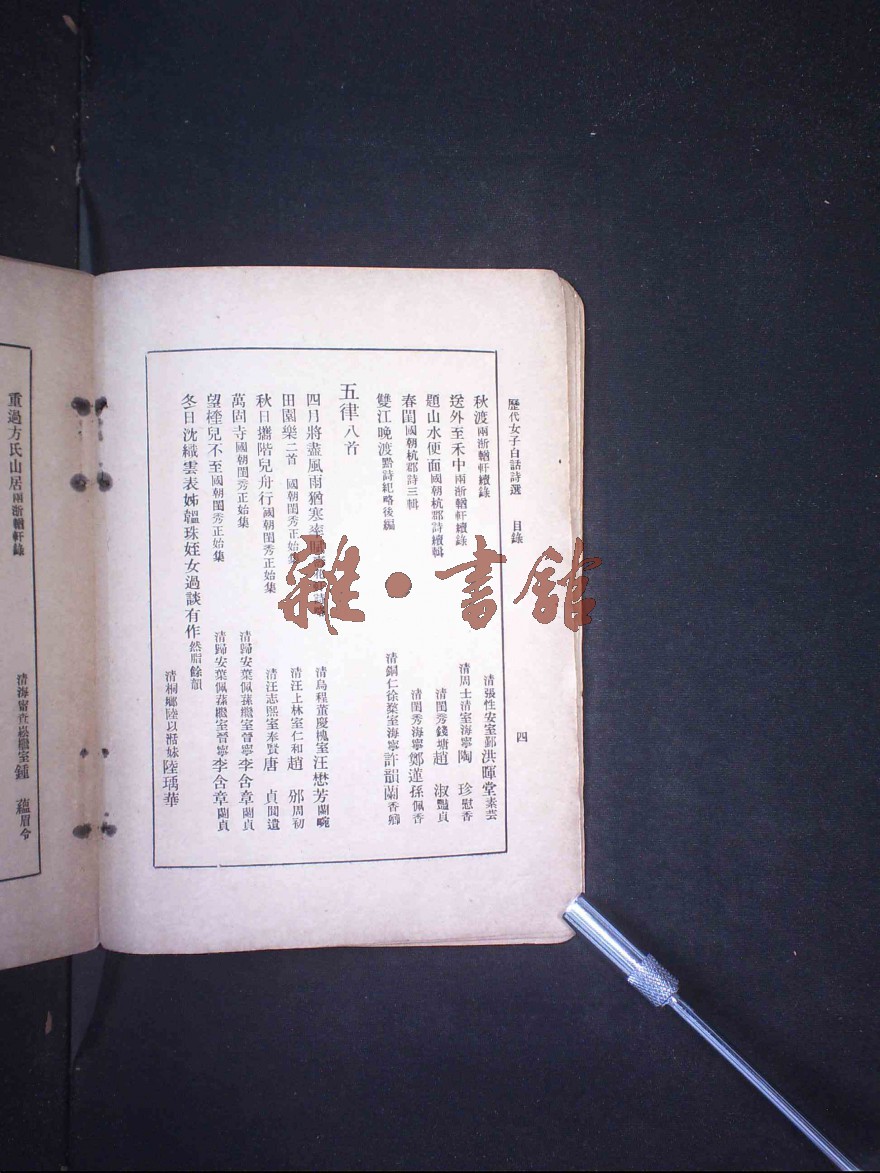 歷代女子白話詩選 目錄 四
秋渡兩浙輶軒續錄 清張性安室鄞洪暉堂素雲
送外至禾中兩浙輶軒續錄 清周士清室海寧陶 珍慰香
題山水便面國朝杭郡詩續輯 清閨秀錢塘趙 淑豔貞
春閨國朝杭郡詩三輯 清閨秀海寧鄭蓮孫佩香
雙江晚渡黔詩紀略後編 清銅仁徐棻室海寧許韻蘭香卿
五律八首
四月將盡風雨猶寒 清烏程董慶槐室汪懋芳蘭畹
田園樂二首 國朝閨秀正始集 清汪上林室仁和趙 邠周初
秋日攜階兒舟行國朝閨秀正始集 清汪志熙室奉賢唐 貞聞遺
萬固寺國朝閨秀正始集 清歸安葉佩蓀繼室晉寧李含章蘭貞
望楏兒不至國朝閨秀正始集 清歸安葉佩蓀繼室晉寧李含章蘭貞
冬日沈織雲表姊韞珠姪女過談有作然脂餘韻 清桐鄉陸以湉妹陸瑀華
重過方氏山居兩浙輶軒錄 清海甯查崧繼室鍾 蘊眉令
雜·書館